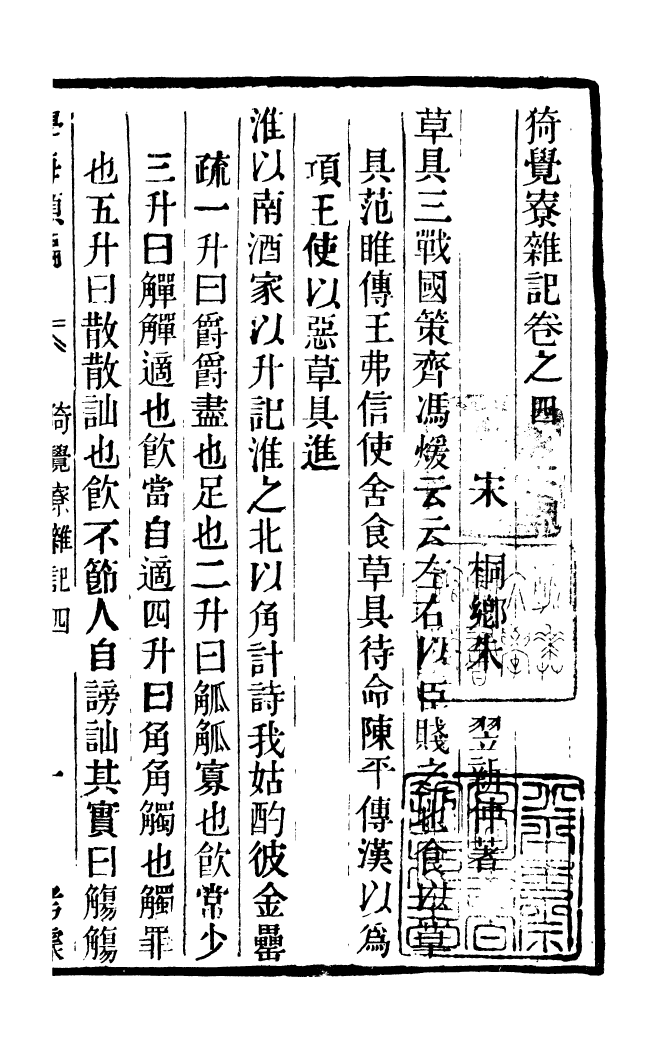 猗覺寮雜記卷之四
宋 桐鄉朱 翌新仲著
草具三戰國策齊馮煖云云左右以臣賤之也食以草
具范睢傳王弗信使舍食草具待命陳平傳漢以爲
項王使以惡草具進
淮以南酒家以升記淮之北以角計詩我姑酌彼金罍
疏一升曰爵爵盡也足也二升曰觚觚寡也飮常少
三升曰觶觶適也飮當自適四升曰角角觸也觸罪
也五升曰散散訕也飮不節人自謗訕其實曰觴觴
學海類編 猗覺寮雜記四 一